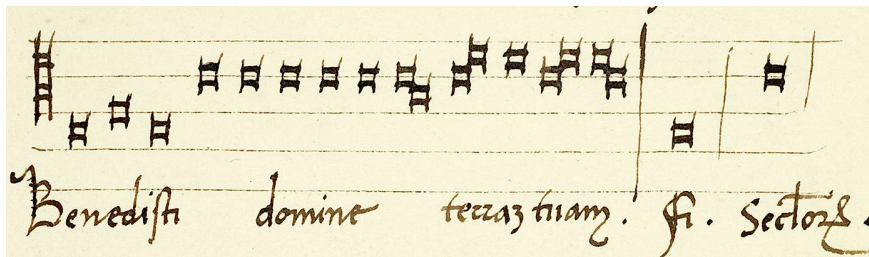 Benedisti domine terraʒ tuam. fi. Seclorꝝ.